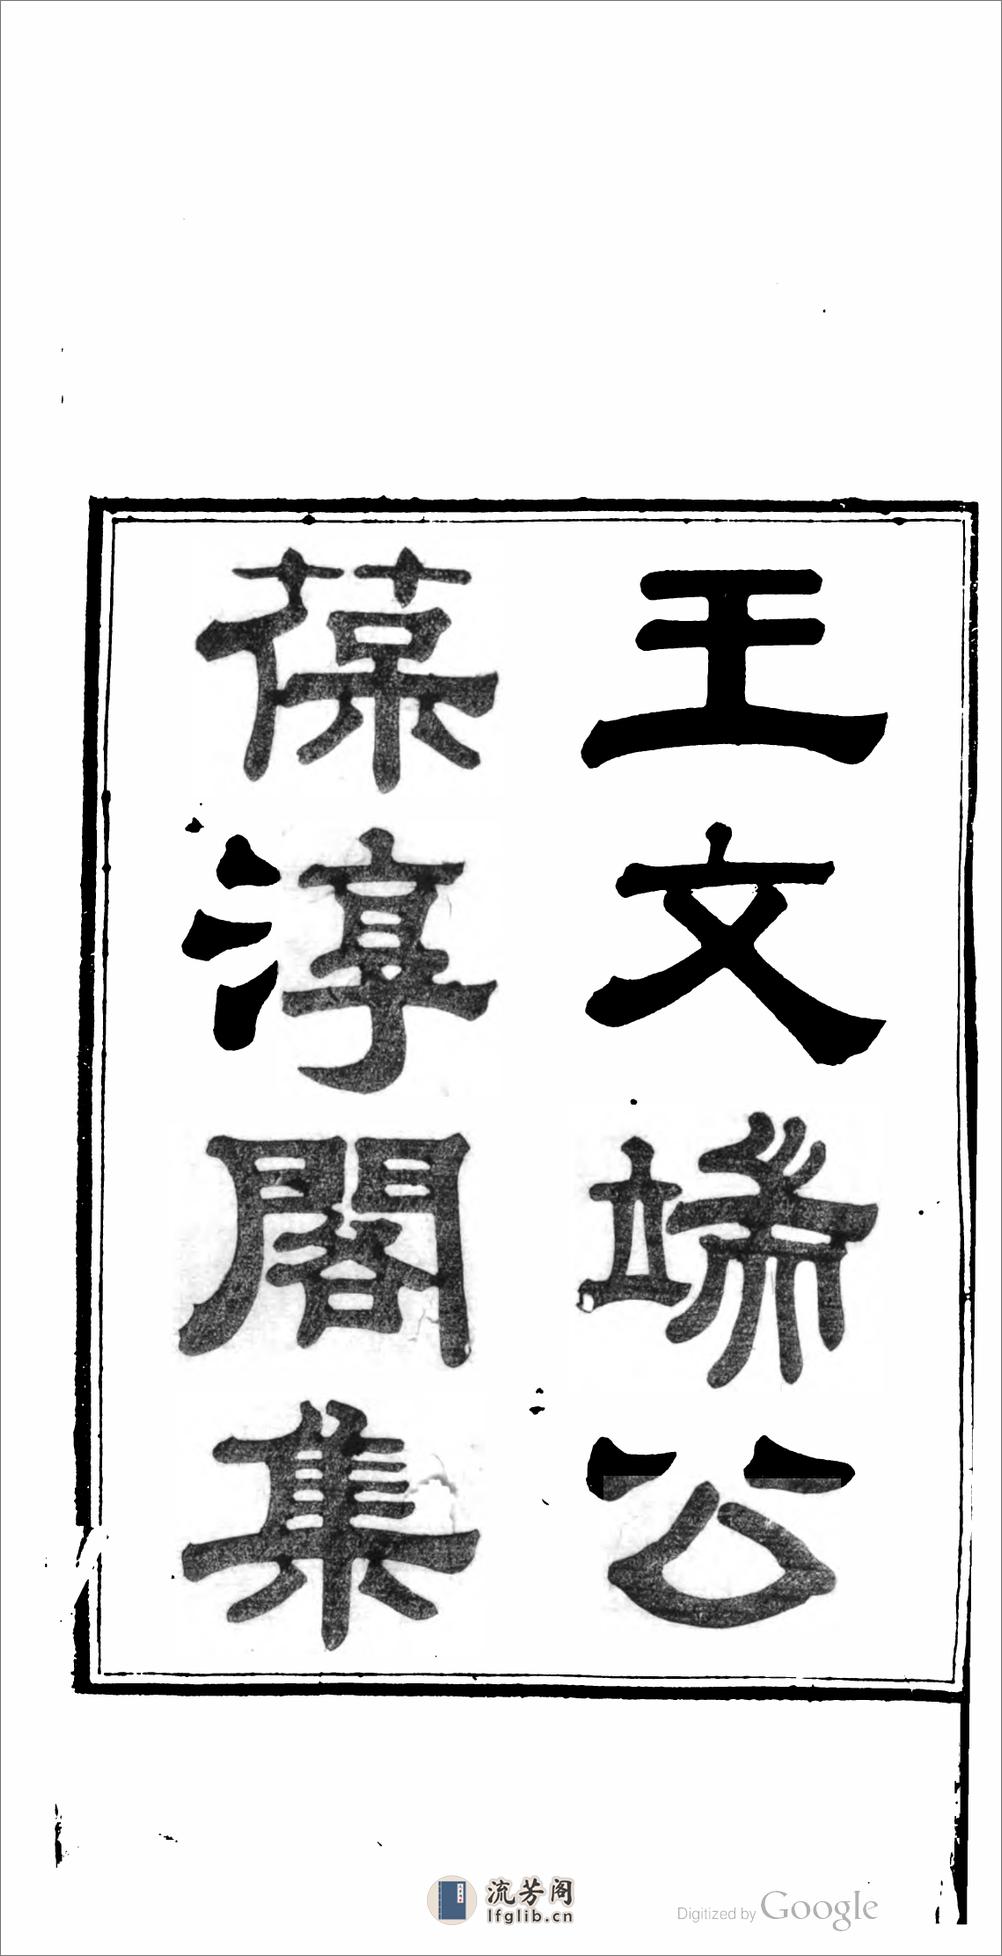 王文端公
葆淳閣集
流芳阁
lfglib.cn
Digitized by Google